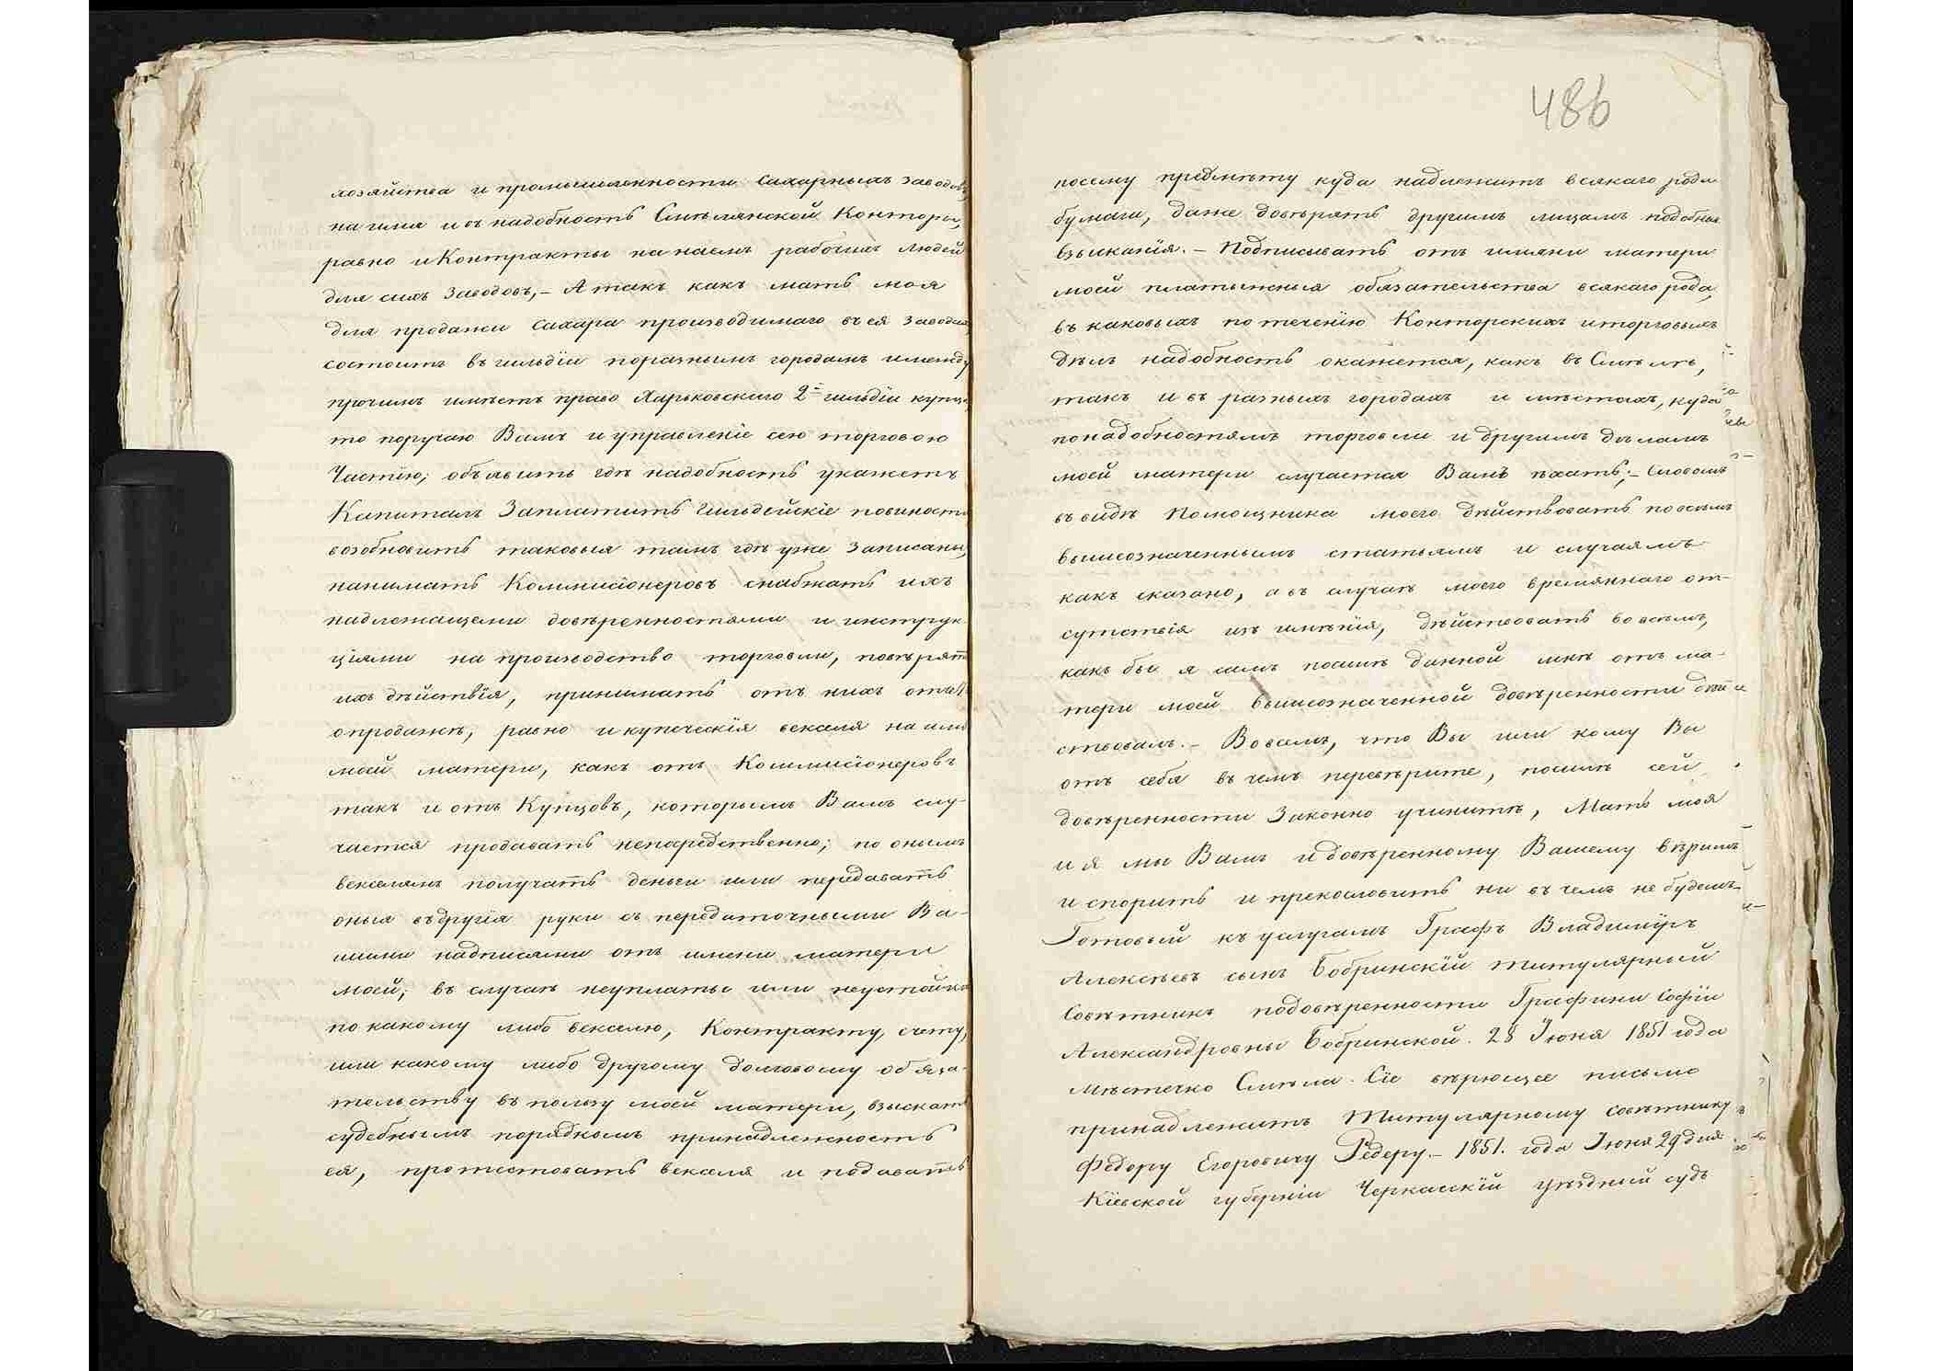 хозяйства и промышленности сахарныхъ заводовъ,
на имя и въ надобность Смѣлянской Конторы,
равно и Контракты на наемъ рабочихъ людей
для сихъ Заводовъ, – А такъ какъ мать моя
для продажи Сахара производимаго въ ея Заводахъ
состоитъ въ гильдіи по разнымъ городамъ и между
прочимъ имѣетъ право Харьковскаго 2й гильдіи купца
то поручаю Вамъ и управленіе сею торговою
Частію; объявить гдѣ надобность укажетъ
Капиталъ Заплатить Гильдейскіе повинности
возобновить таковыя тамъ гдѣ уже Записаны,
нанимать Коммисіонеровъ снабжать ихъ
надлежащеми довѣренностями и инструк-
ціями на производство торговли, повѣрять
ихъ дѣйствія, принимать отъ нихъ отчеты
о продажѣ, равно и купеческія векселя на имя
моей матери, какъ отъ Коммисіонеровъ
такъ и отъ Купцовъ, которымъ Вамъ слу-
чается продавать непосредственно; по онымъ
векселямъ получать деньги или передавать
оныя въ другія руки съ передаточными Ва-
шими надписями отъ имени матери
моей; въ случаѣ неуплаты или неустойки
по какому либо векселю, Контракту, счету,
или какому либо другому долговому обяза-
тельству въ пользу моей матери, взыскать
судебнымъ порядкомъ принадлежность
ея, протестовать векселя и подавать
486
посему предмѣту куда надлежитъ всякаго рода
бумаги, даже довѣрять другимъ лицамъ подобныя
взысканія. – Подписывать отъ имяни матери
моей платежныя обязательства всякаго рода,
въ каковыхъ по теченію Конторскихъ и торговыхъ
дѣлъ надобность окажется, какъ въ Смѣлѣ,
такъ и въ разныхъ городахъ и мѣстахъ, куда
по надобностямъ торговли и другимъ дѣламъ
моей матери случается Вамъ ѣхать; – Словомъ
въ видѣ Помощника моего дѣйствовать по всѣмъ
вышеозначеннымъ статьямъ и случаямъ
какъ сказано, а въ случаѣ моего времяннаго от-
сутствія изъ имѣнія, дѣйствовать во всемъ,
какъ бы я самъ по силѣ данной мнѣ отъ ма-
тери моей вышеозначенной довѣренности дѣй-
ствовалъ. – Во всемъ, что Вы или кому Вы
отъ себя въ чемъ перевѣрите, по силѣ сей
довѣренности Законно учините, Мать моя
и я мы Вамъ и довѣренному Вашему вѣримъ
и спорить и прекословить ни въ чемъ не будемъ
Готовый къ услугамъ Графъ Владиміръ
Алексѣевъ сынъ Бобринскій титулярный
Совѣтникъ по довѣренности Графини Софіи
Александровны Бобринской. 28 Іюня 1851 года
Мѣстечко Смѣла. Сіе вѣрющее письмо
принадлежитъ Титулярному Совѣтнику
Федору Егоровичу Редеру. – 1851. года Іюня 29 дня
Кіевской губерніи Черкасскій уѣздный судъ